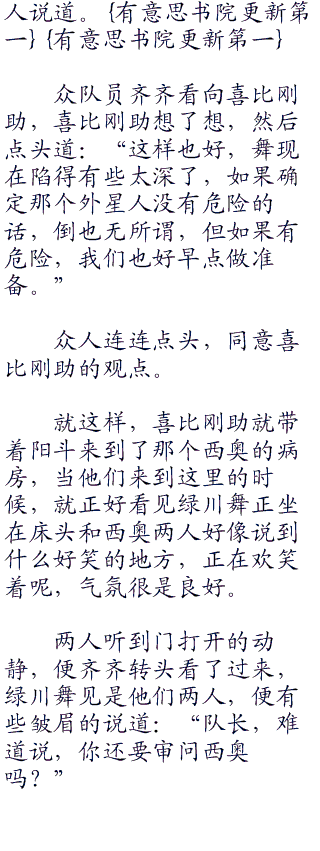 人说道。{有意思书院更新第
一}{有意思书院更新第一}
众队员齐齐看向喜比刚
助，喜比刚助想了想，然后
点头道：“这样也好，舞现
在陷得有些太深了，如果确
定那个外星人没有危险的
话，倒也无所谓，但如果有
危险，我们也好早点做准
备。”
众人连连点头，同意喜
比刚助的观点。
就这样，喜比刚助就带
着阳斗来到了那个西奥的病
房，当他们来到这里的时
候，就正好看见绿川舞正坐
在床头和西奥两人好像说到
什么好笑的地方，正在欢笑
着呢，气氛很是良好。
两人听到门打开的动
静，便齐齐转头看了过来，
绿川舞见是他们两人，便有
些皱眉的说道：“队长，难
道说，你还要审问西奥
吗？”